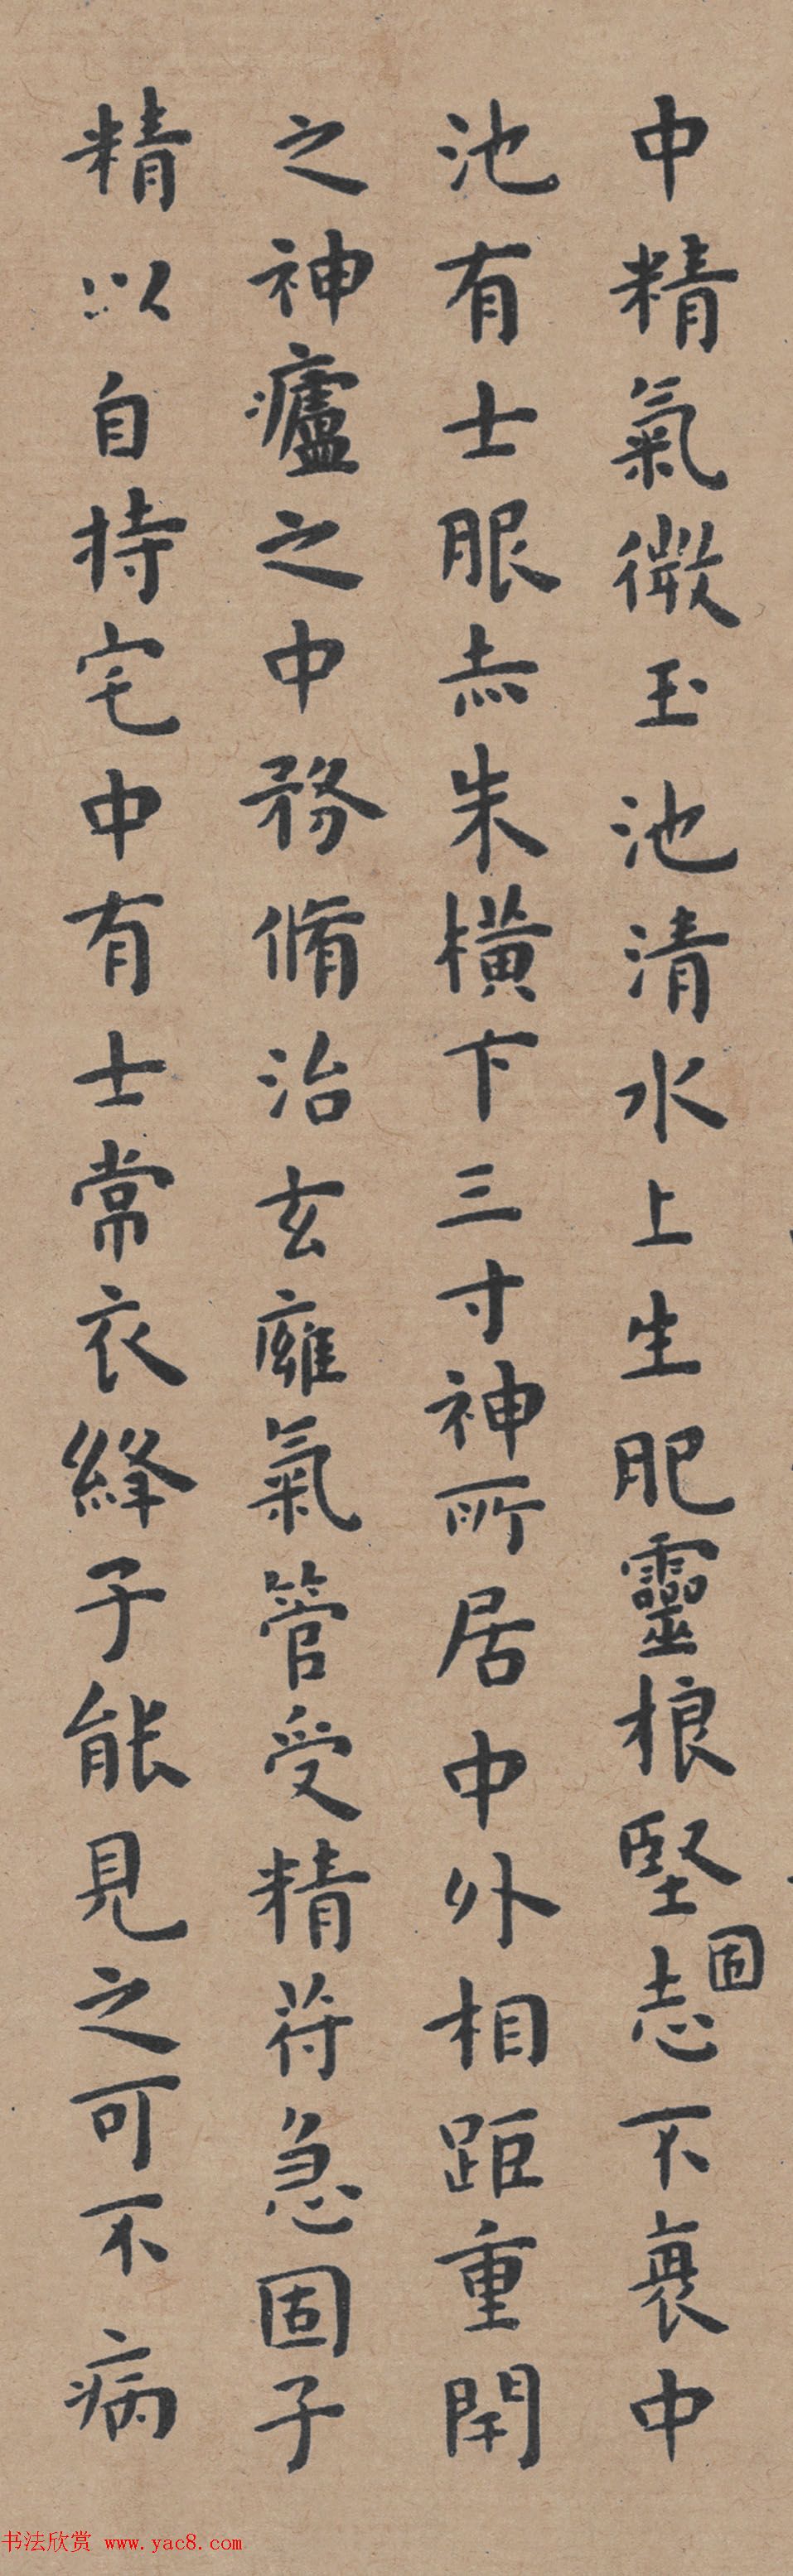 中精氣微玉池清水上生肥靈根堅固志不衰中
池有士服赤朱橫下三寸神所居中外相距重閉
之神廬之中務脩治玄膺氣管受精符急固子
精以自持宅中有士常衣絳子能見之可不病
书法欣赏 www.yac8.com